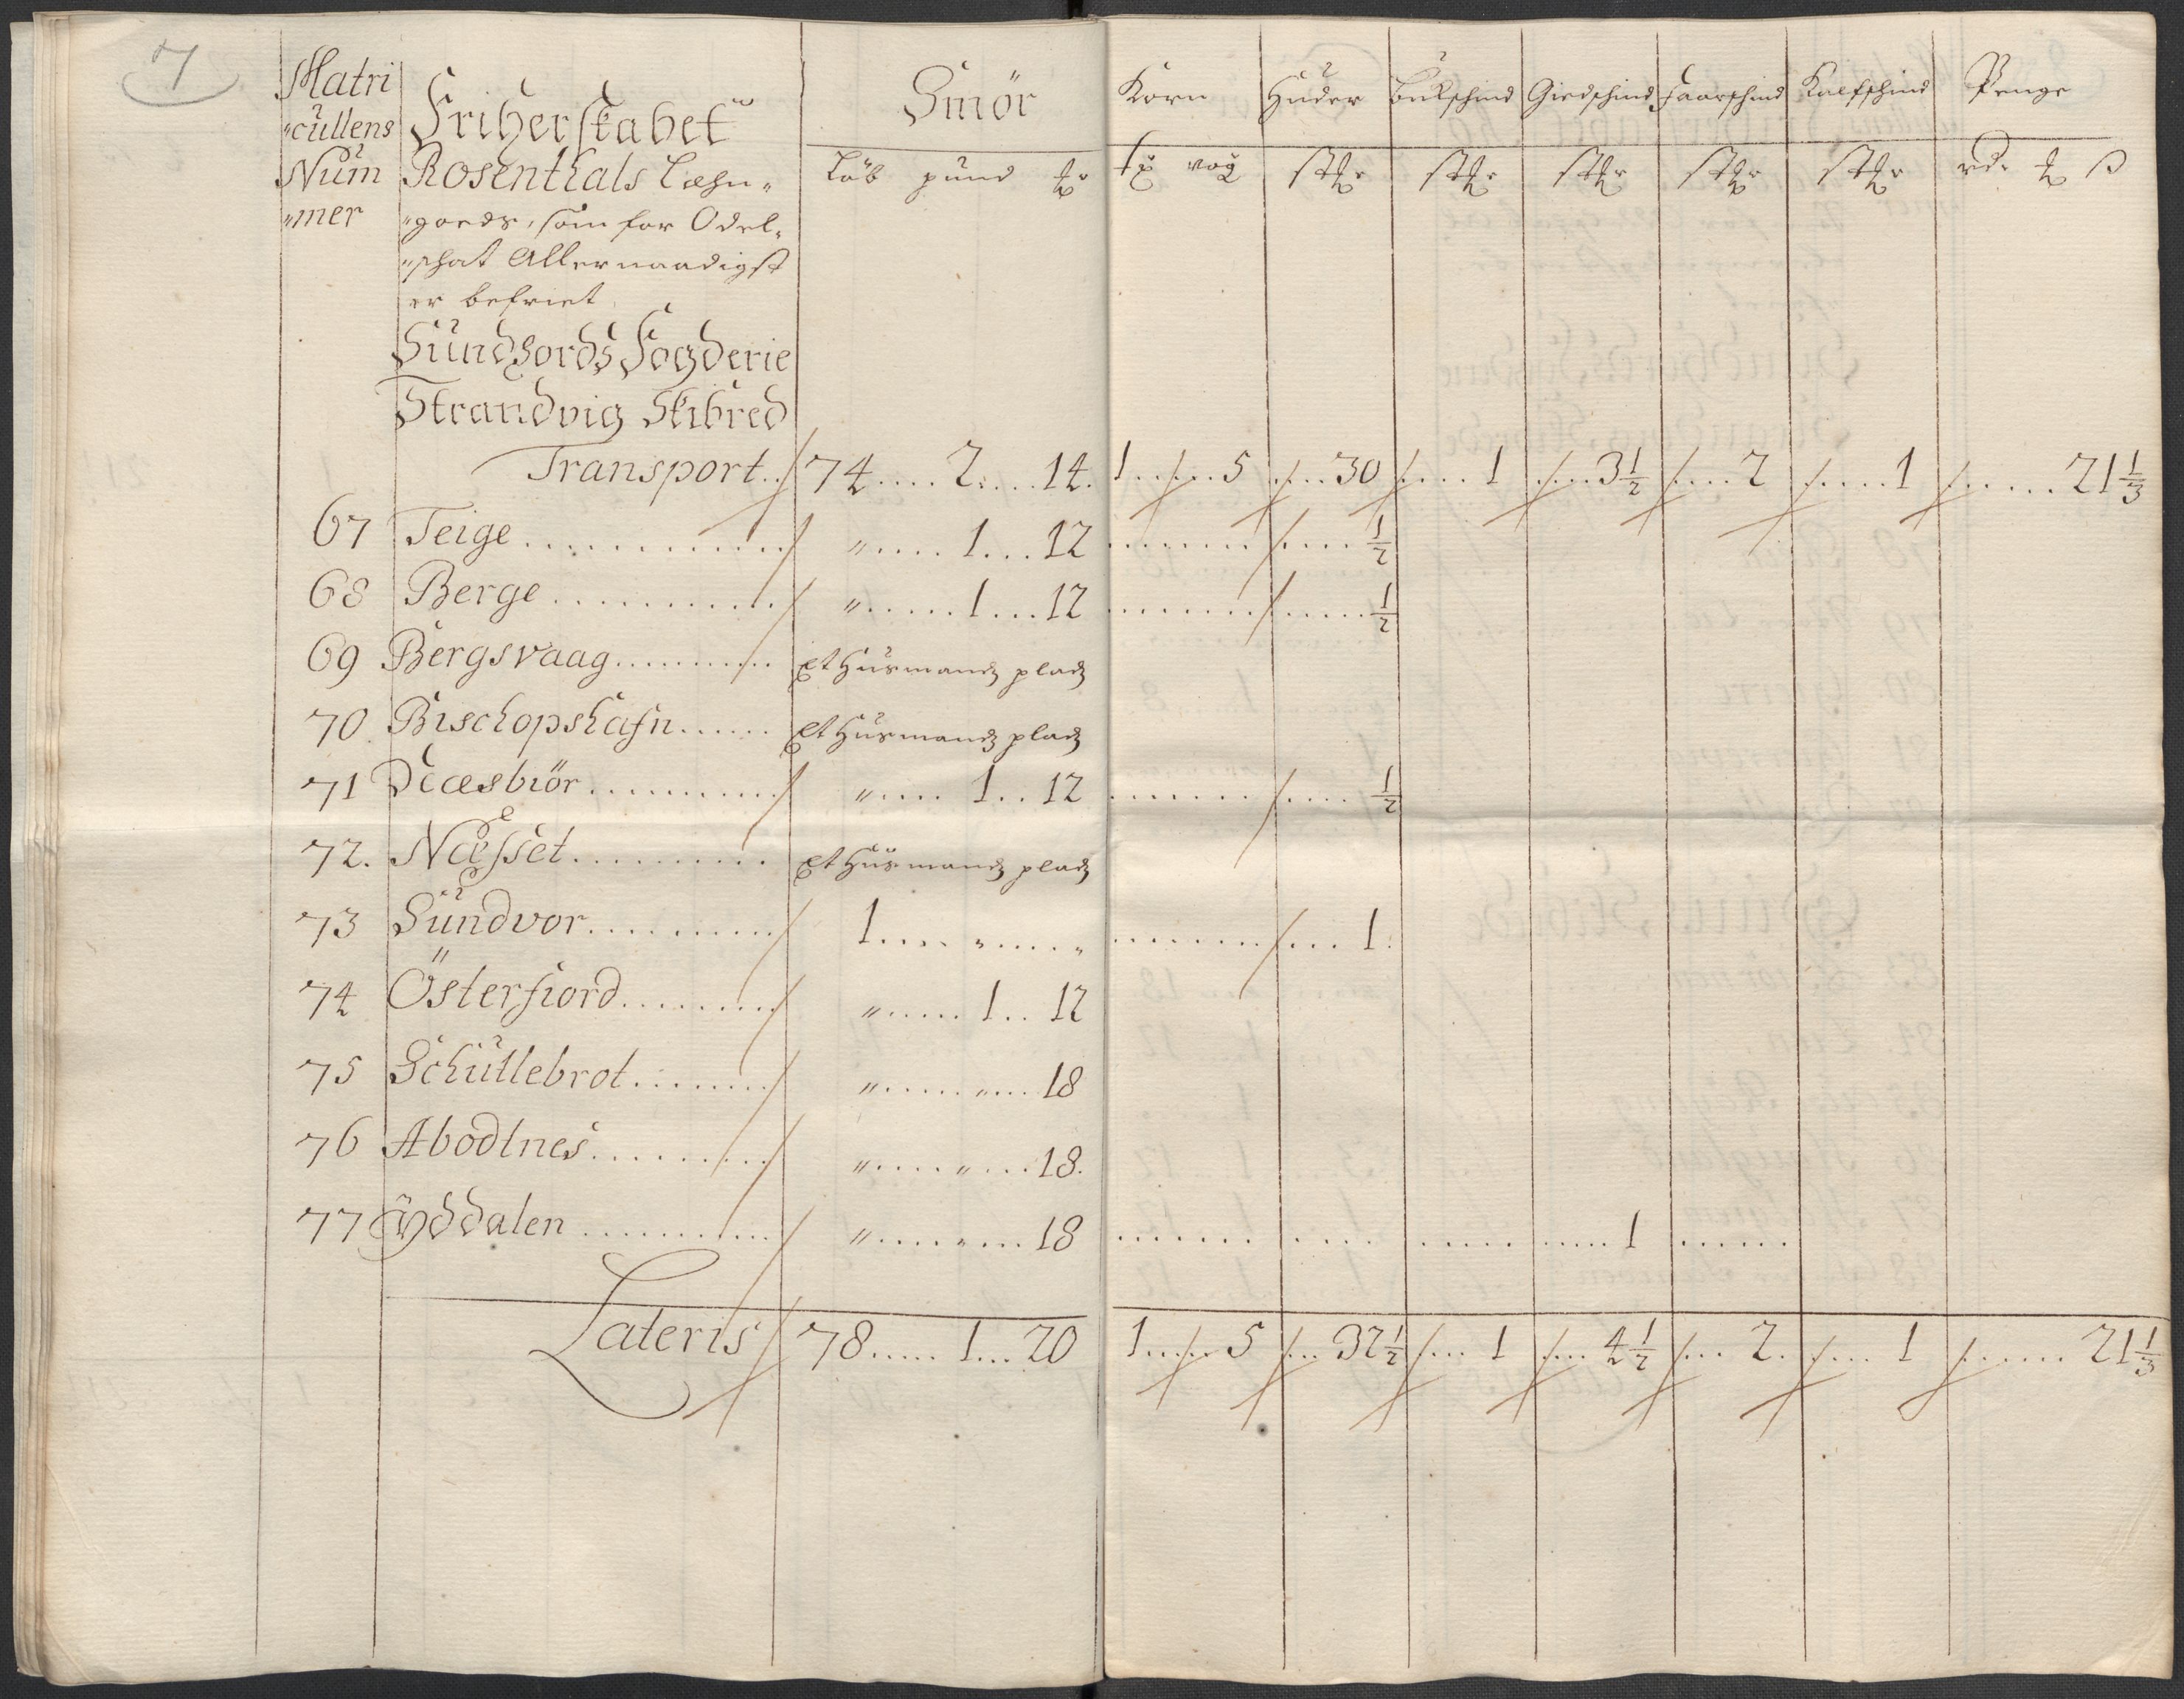 7
Matri
"cullens
Num
"mer
Friherskabet
Rosenthals Læhn„
"goeds, som for Odel„
"schat Allernaadigst
er befriet
Sundhords Fogderie
Strandvig Skibred
Smör
Löb pund
Korn Huder Bukschind Giedschind Faarschind Kalfschind Penge
vog rd. ß
Transport.. 74..... 2..... 14. 1..... 5 .... 30 .... 1 .... 3 1/2 .... 2 ..... 1 ...... 21 1/3
67 Teige............. "..... 1... 12 ........ .... 1/2
68 Berge............ "...... 1... 12 ........ ..... 1/2
69 Bergsvaag.......... Et Husmands plads
70 Bischopshafn...... Et Husmands plads
71 Diæsbiör.......... ".... 1.. 12 ........ .... 1/2
72. Næsset.......... Et Husmands plads
73 Sundvor......... 1.... "..... " ......... ... 1.
74 Österfiord........ "..... 1.. 12
75 Schutlebrot....... "...... "... 18
76 Abodlnes......... "..... "... 18.
77 Yddalen.......... "..... "... 18 ....... .... ..... ..... 1 ......
Lateris 78..... 1... 20 1..... 5 ... 32 1/2 ... 1 .... 4 1/2 ... 2. .... 1 ...... 21 1/3